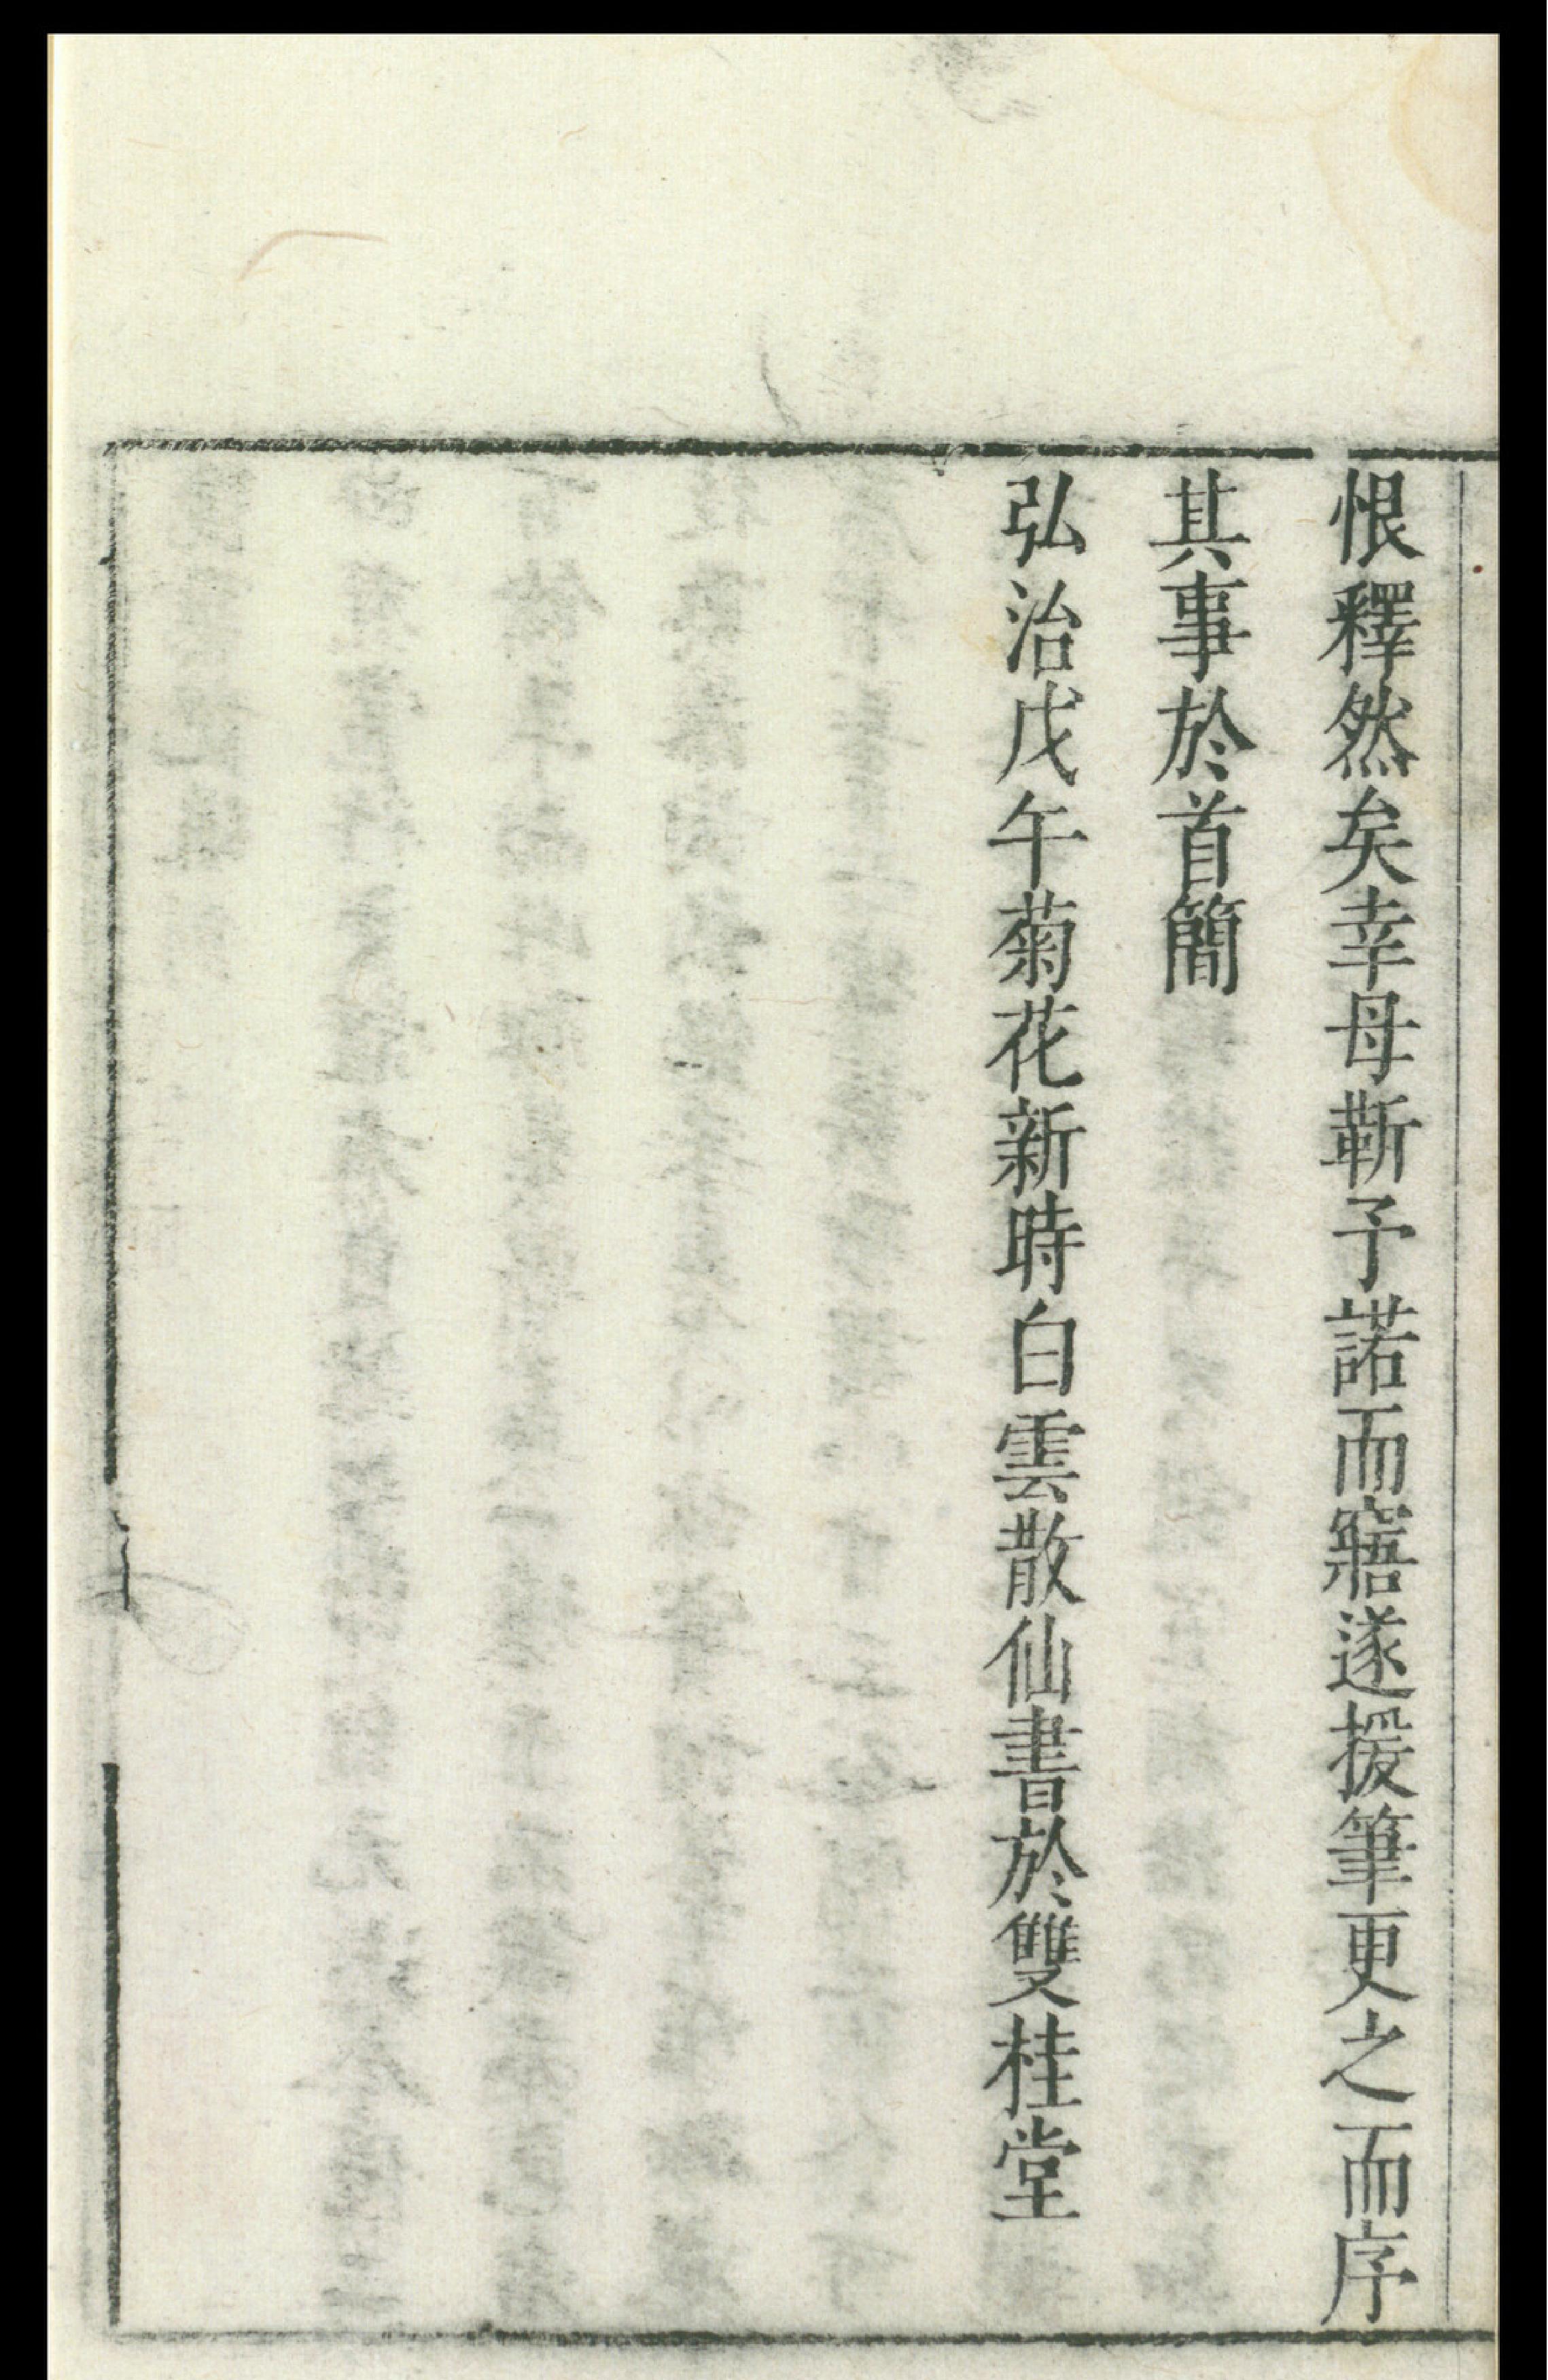 恨釋然矣幸母靳予諾而寤遂援筆更之而序
其事於首簡
弘治戊午菊花新時白雲散仙書於雙桂堂